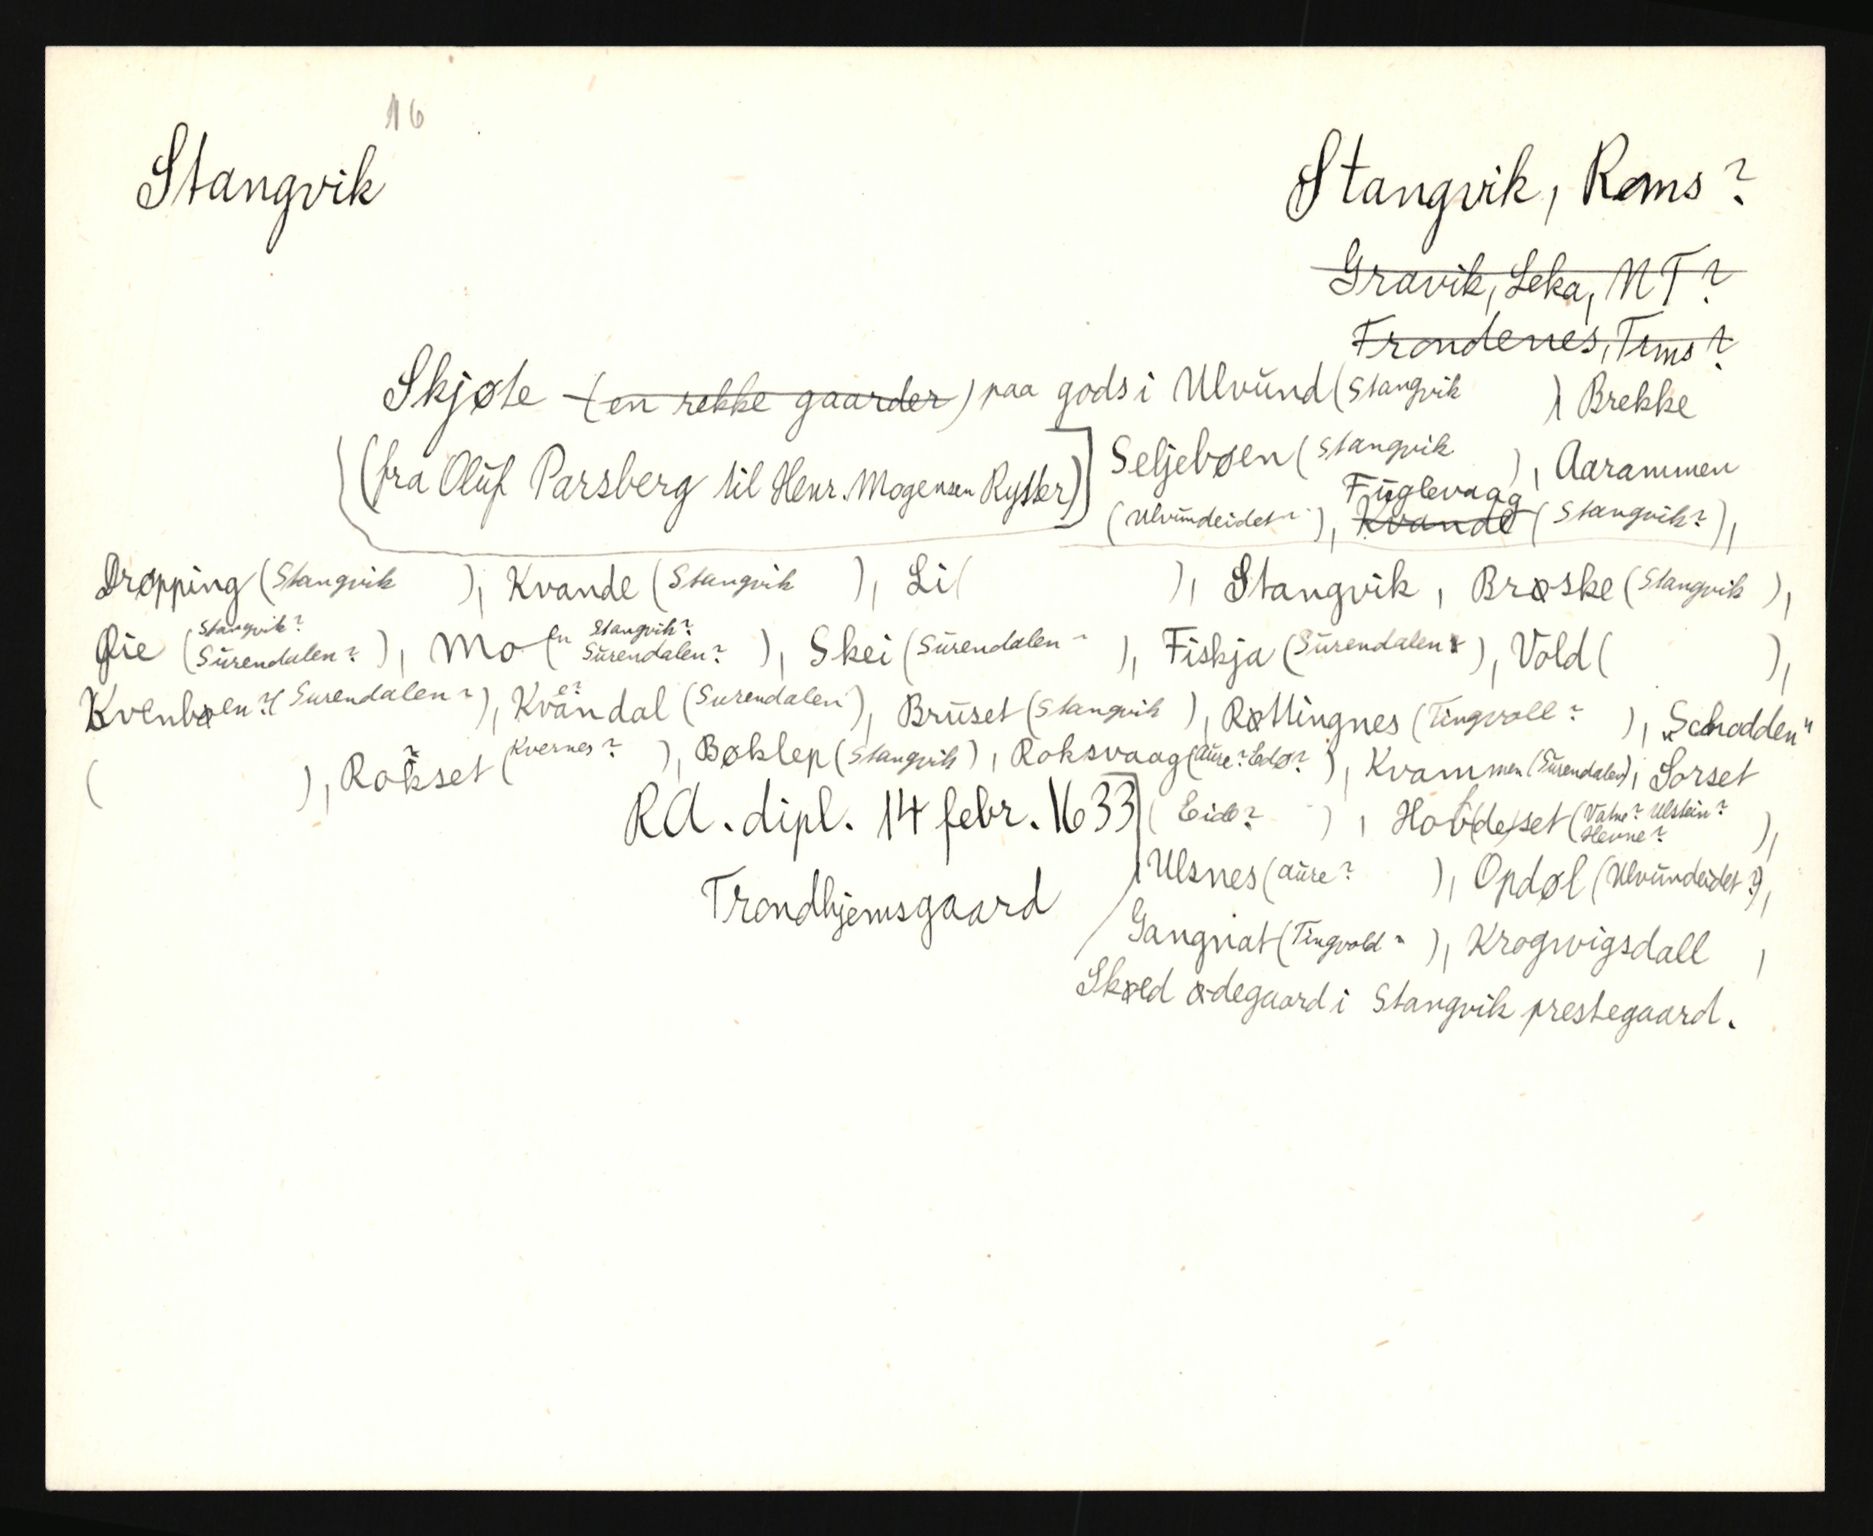 16
Stangvik
Stangvik, Roms?
Gravik, Leka, NT?
Trondenes, Trms?
Skjøte (en rekke gaarder) paa gods i Ulvund (Stangvik ), Brekke
(fra Oluf Parsberg til Henr. Mogensen Rytter)] Seljebøen (Stangvik ), Aarammen
(Ulvundeidet?), Kvande Fuglevaag (Stangvik?),
Drøpping (Stangvik ), Kvande (Stangvik ), Li ( ), Stangvik, Brøske (Stangvik ),
Øie (Stangvik? Surendalen? ), Mo (Stangvik? Surendalen? ), Skei (Surendalen ), Fiskja (Surendalen ), Vold ( ),
Kvenbøen? (Surendalen?), Kvandal (Surendalen), Bruset (Stangvik ), Røttingnes (Tingvoll? ), "Schodden"
( ), Rokset (Kvernes? ), Bøklep (Stangvik), Roksvaag (Aure? Edø? ), Kvammen (Surendalen), Sorset
RA. dipl. 14 febr. 1633 (Eide? ), Hov(de)set (Vatne? Ulstein? Hevne? ),
Ulsnes (Aure? ), Opdøl (Ulvundeidet?),
Trondhjemsgaard
Gangnat (Tingvold ), Krogwigsdall ,
Skøed ødegaard i Stangvik prestegaard.